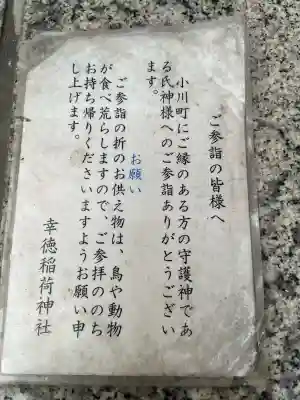 ご参詣の皆様へ
小川町にご縁のある方の守護神であ
る氏神様へのご参詣ありがとうござい
ます。
お願い
ご参詣の折のお供え物は、鳥や動物
が食べ荒らしますので、ご参拝ののち
お持ち帰りくださいますようお願い申
し上げます。
幸徳稲荷神社